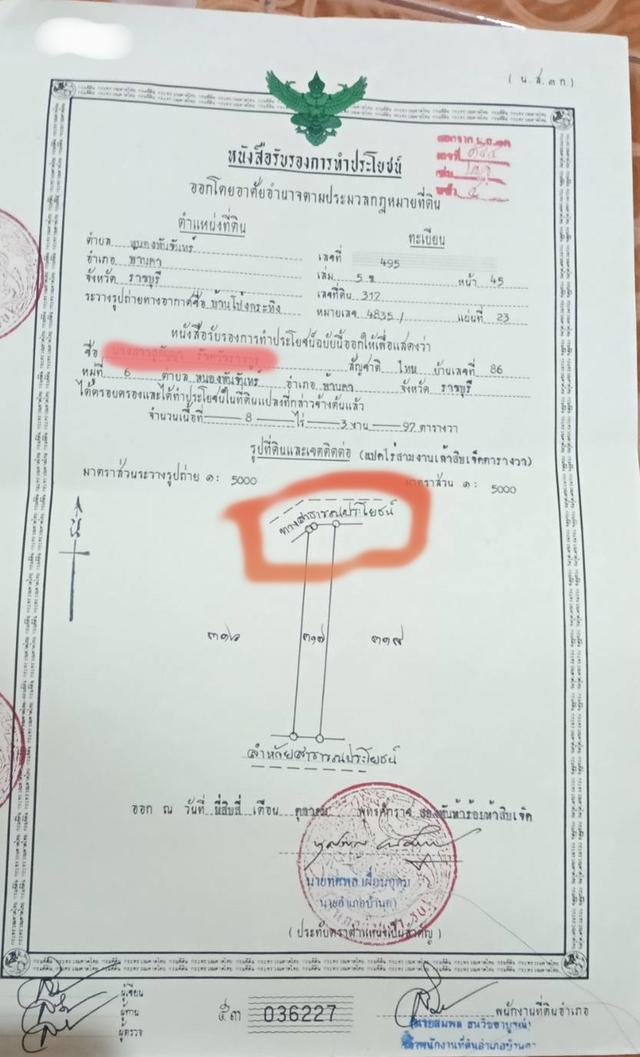 ( น.ส.๓ก )
หนังสือรับรองการทำประโยชน์
ออกโดยอาศัยอำนาจตามประมวลกฎหมายที่ดิน
ตำแหน่งที่ดิน ทะเบียน
ตำบล หนองพันจันทร์ เลขที่ 495
อำเภอ บ้านคา เล่ม 5 ข หน้า 45
จังหวัด ราชบุรี เลขที่ดิน 317
ระวางรูปถ่ายทางอากาศชื่อ บ้านโป่งกระทิง หมายเลข 4835 I แผ่นที่ 23
หนังสือรับรองการทำประโยชน์ฉบับนี้ออกให้เพื่อแสดงว่า
ชื่อ สัญชาติ ไทย บ้านเลขที่ 86
หมู่ที่ 6 ตำบล หนองพันจันทร์ อำเภอ บ้านคา จังหวัด ราชบุรี
ได้ครอบครองและได้ทำประโยชน์ในที่ดินแปลงที่กล่าวข้างต้นแล้ว
จำนวนเนื้อที่ 8 ไร่ 3 งาน 97 ตารางวา
รูปที่ดินและเขตติดต่อ (แปดไร่สามงานเก้าสิบเจ็ดตารางวา)
มาตราส่วนระวางรูปถ่าย ๑: 5000 มาตราส่วน ๑: 5000
ทางสาธารณประโยชน์
น
๓๑๖ ๓๑๗ ๓๑๘
ลำห้วยสาธารณประโยชน์
ออก ณ วันที่ ยี่สิบสี่ เดือน ตุลาคม พุทธศักราช สองพันห้าร้อยห้าสิบเจ็ด
นายอำเภอบ้านคา
( ประทับตราตำแหน่งเป็นสำคัญ )
ผู้เขียน
ผู้ทาน
ผู้ตรวจ
036227
พนักงานที่ดินอำเภอ
เจ้าพนักงานที่ดินอำเภอบ้านคา